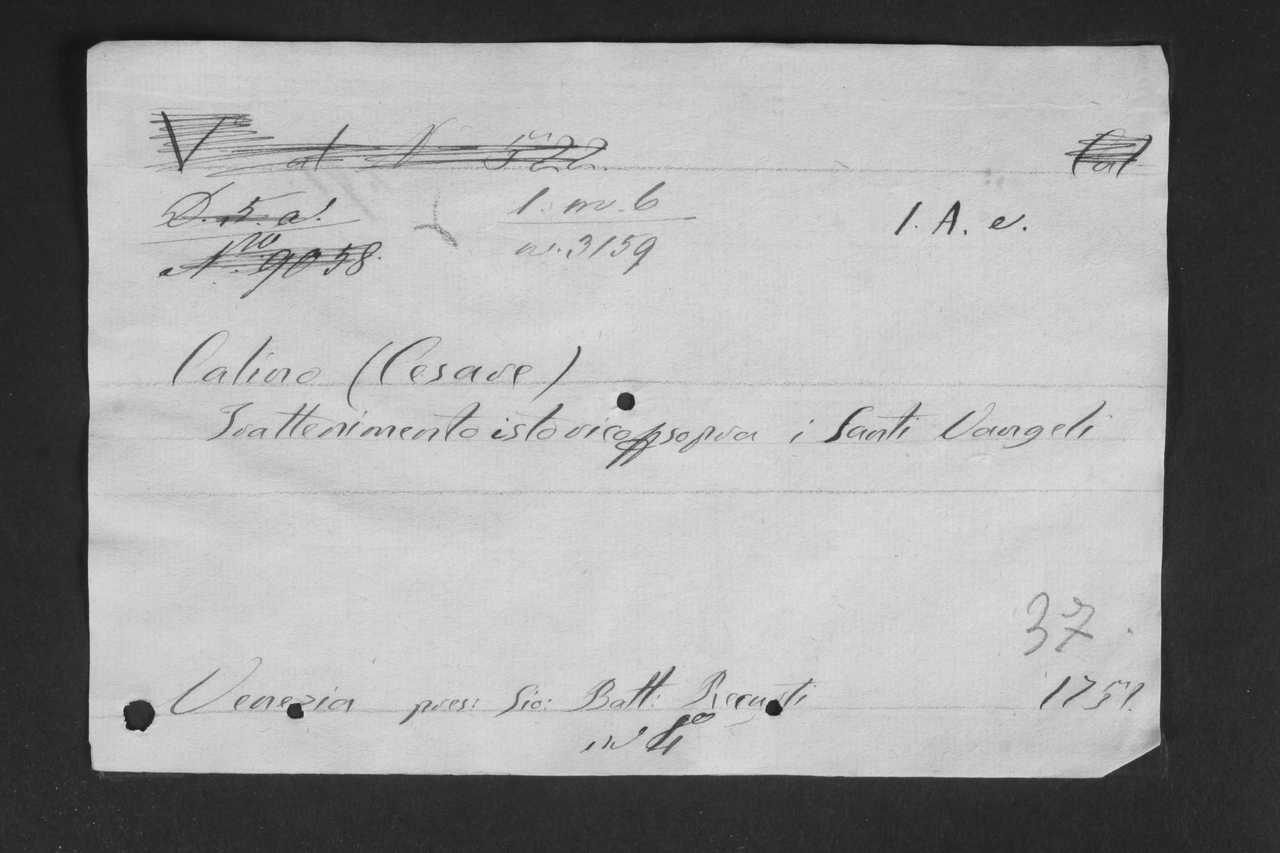 V at N 522 Cal
D. 5. a!
1. m. 6
I. A. e.
N.ro 9058.
n. 3159
Calino (Cesare)
Trattenimento istorico sopra i Santi Vangeli
37.
Venezia pres: Gio: Batt: Recurti 1751.
in 4º